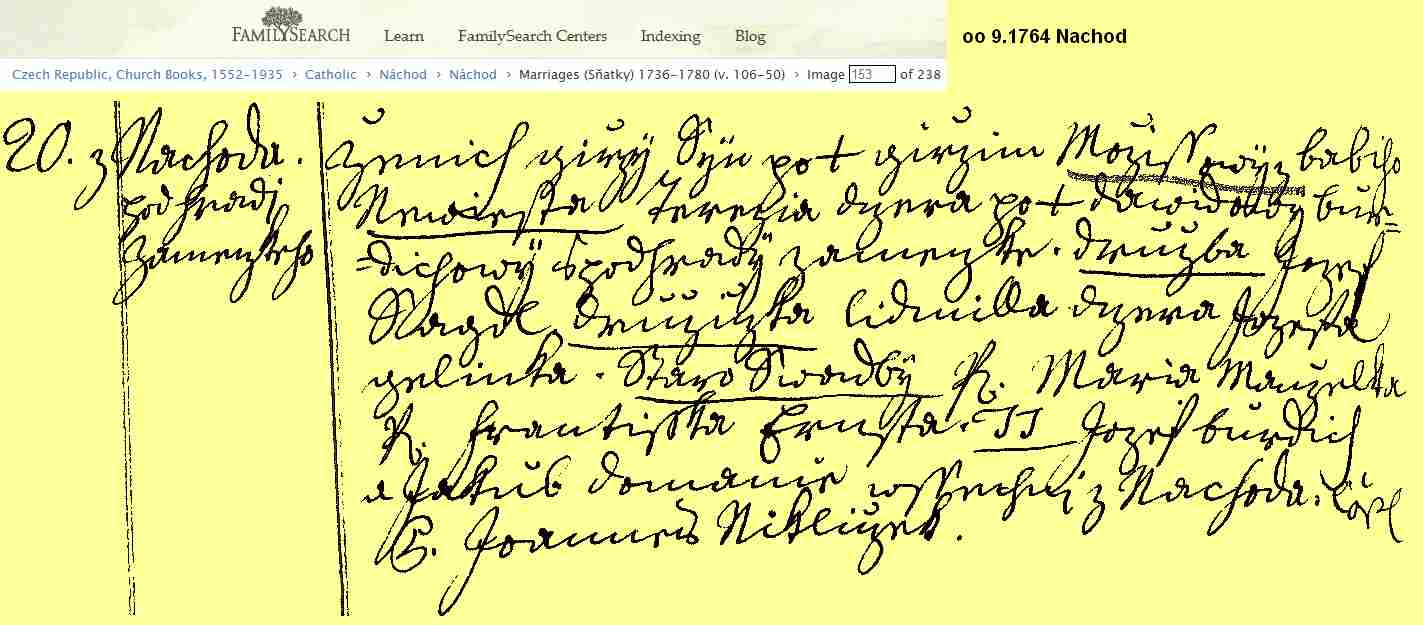 FAMILYSEARCH Learn FamilySearch Centers Indexing Blog
oo 9.1764 Nachod
Czech Republic, Church Books, 1552-1935 › Catholic › Náchod › Náchod › Marriages (Sňatky) 1736-1780 (v. 106-50) › Image 153 of 238
20. z Nachoda.
podhradj
Zamenzkeho
Zenich girzy Syn pot girzim babiho
Newiesta Terezia dzera pot dawidowy bur=
=dichowy spodhrady zamenzke. družba Jozef
Nagdl družizka lidmilla dzera Jozefa
gelinka. Staro Swadby P. Maria Manzelka
P. Frantisska Ernsta. JJ Jozef burdich
a Jakub domanie wssechni z Nachoda.
C. Joannes Niklizek.